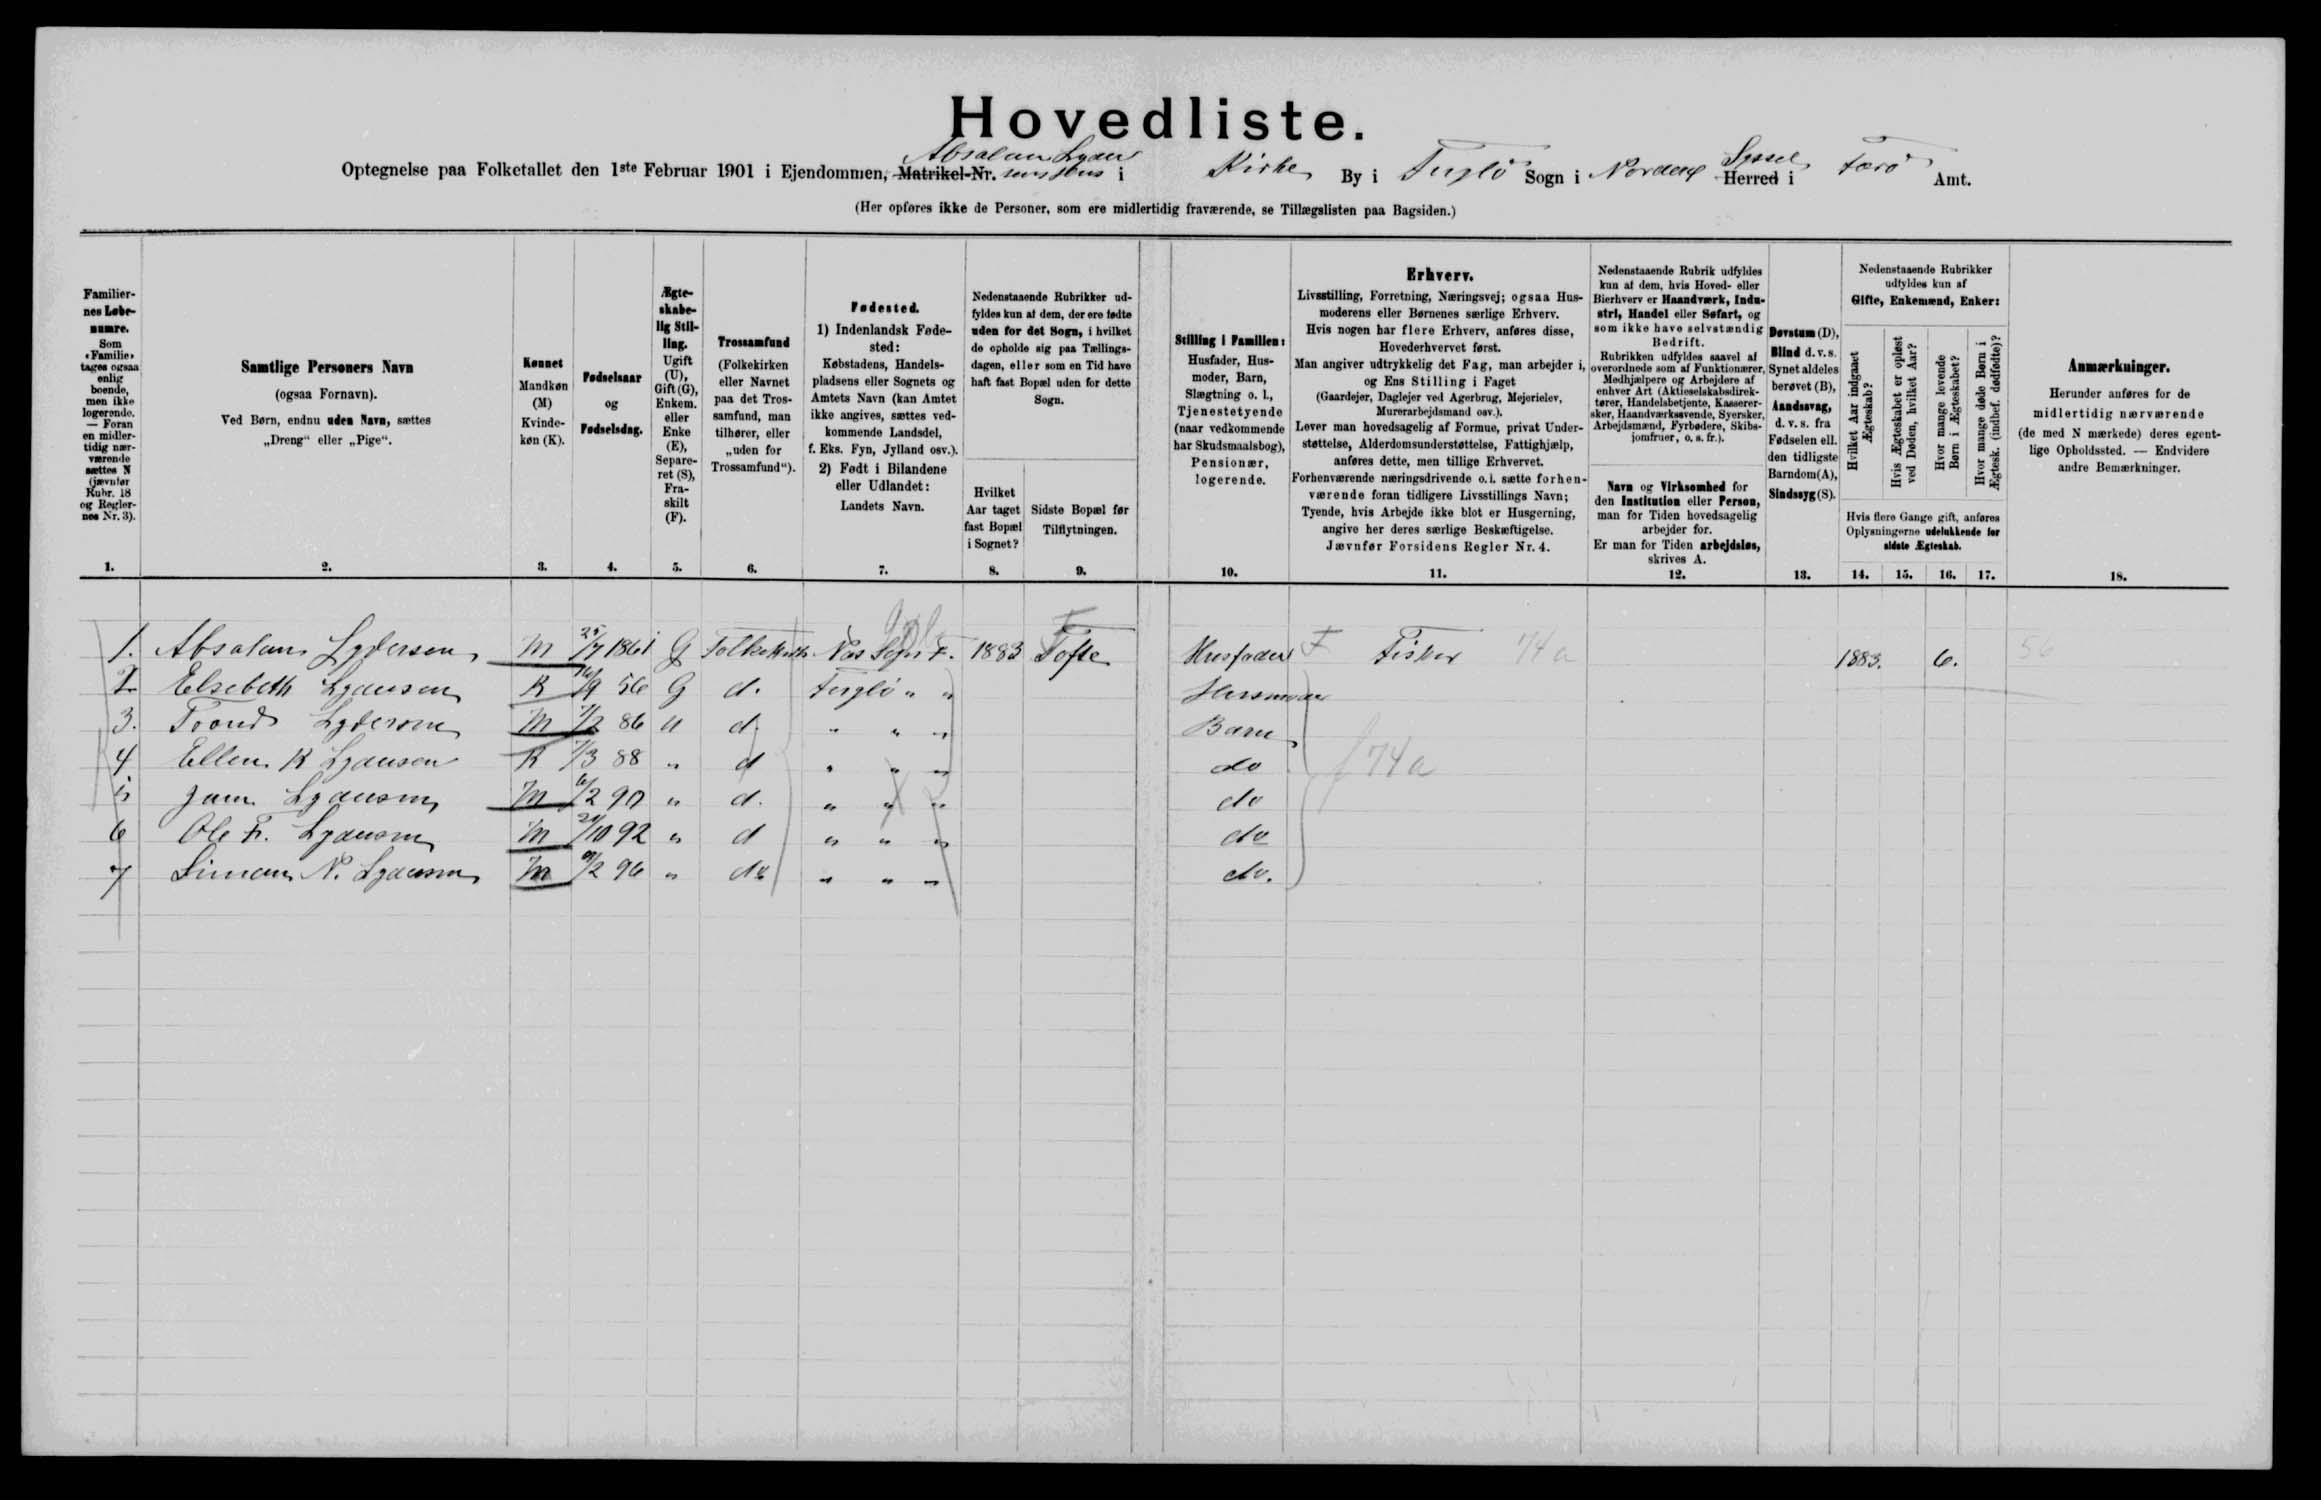 Hovedliste.
Optegnelse paa Folketallet den 1ste Februar 1901 i Ejendommen, Matrikel-Nr. Absalons Lydersens i Kirke By i Fuglö Sogn i Norderø Syssel Herred i Færö Amt.
(Her opføres ikke de Personer, som ere midlertidig fraværende, se Tillægslisten paa Bagsiden.)
Familiernes Løbenumre.
Som «Familie» tages ogsaa enlig boende, men ikke logerende. — Foran en midlertidig nærværende sættes N (jævnfør Rubr. 18 og Reglernes Nr. 3).
1.
Samtlige Personers Navn
(ogsaa Fornavn).
Ved Børn, endnu uden Navn, sættes
„Dreng“ eller „Pige“.
2.
Kønnet
Mandkøn (M)
Kvindekøn (K).
3.
Fødselsaar
og
Fødselsdag.
4.
Ægteskabelig Stilling.
Ugift (U), Gift (G), Enkem. eller Enke (E), Separeret (S), Fraskilt (F).
5.
Trossamfund
(Folkekirken eller Navnet paa det Trossamfund, man tilhører, eller „uden for Trossamfund“).
6.
Fødested.
1) Indenlandsk Fødested:
Købstadens, Handelspladsens eller Sognets og Amtets Navn (kan Amtet ikke angives, sættes vedkommende Landsdel, f. Eks. Fyn, Jylland osv.).
2) Født i Bilandene eller Udlandet:
Landets Navn.
7.
Nedenstaaende Rubrikker udfyldes kun af dem, der ere fødte uden for det Sogn, i hvilket de opholde sig paa Tællingsdagen, eller som en Tid have haft fast Bopæl uden for dette Sogn.
Hvilket Aar taget fast Bopæl i Sognet?
8.
Sidste Bopæl før Tilflytningen.
9.
Stilling i Familien:
Husfader, Husmoder, Barn, Slægtning o. l., Tjenestetyende (naar vedkommende har Skudsmaalsbog), Pensionær, logerende.
10.
Erhverv.
Livsstilling, Forretning, Næringsvej; ogsaa Husmoderens eller Børnenes særlige Erhverv.
Hvis nogen har flere Erhverv, anføres disse, Hovederhvervet først.
Man angiver udtrykkelig det Fag, man arbejder i, og Ens Stilling i Faget
(Gaardejer, Daglejer ved Agerbrug, Mejerielev, Murerarbejdsmand osv.).
Lever man hovedsagelig af Formue, privat Understøttelse, Alderdomsunderstøttelse, Fattighjælp, anføres dette, men tillige Erhvervet.
Forhenværende næringsdrivende o. l. sætte forhenværende foran tidligere Livsstillings Navn;
Tyende, hvis Arbejde ikke blot er Husgerning, angive her deres særlige Beskæftigelse.
Jævnfør Forsidens Regler Nr. 4.
11.
Nedenstaaende Rubrik udfyldes kun af dem, hvis Hoved- eller Bierhverv er Haandværk, Industri, Handel eller Søfart, og som ikke have selvstændig Bedrift.
Rubrikken udfyldes saavel af overordnede som af Funktionærer, Medhjælpere og Arbejdere af enhver Art (Aktieselskabsdirektører, Handelsbetjente, Kasserersker, Haandværkssvende, Syersker, Arbejdsmænd, Fyrbødere, Skibsjomfruer, o. s. fr.).
Navn og Virksomhed for den Institution eller Person, man for Tiden hovedsagelig arbejder for.
Er man for Tiden arbejdsløs, skrives A.
12.
Døvstum (D), Blind d. v. s. Synet aldeles berøvet (B), Aandssvag, d. v. s. fra Fødselen ell. den tidligste Barndom (A), Sindssyg (S).
13.
Nedenstaaende Rubrikker udfyldes kun af
Gifte, Enkemænd, Enker:
Hvilket Aar indgaaet Ægteskab?
Hvis Ægteskabet er opløst ved Døden, hvilket Aar?
Hvor mange levende Børn i Ægteskabet?
Hvor mange døde Børn i Ægtesk. (indbef. dødfødte)?
Hvis flere Gange gift, anføres Oplysningerne udelukkende for sidste Ægteskab.
14. 15. 16. 17.
Anmærkninger.
Herunder anføres for de midlertidig nærværende (de med N mærkede) deres egentlige Opholdssted. — Endvidere andre Bemærkninger.
18.
1. Absalon Lydersen M 25/7 1861 G Folkekirk Næs Sogn F. 1883 Tofte Husfader F Fisker 74a 1883. 6. 56
2 Elsebeth Lydersen K 16/9 56 G d. Fuglö " " Husmoder
3. Trond Lydersen M 7/2 86 U d. " " " Barn
4 Ellen K Lydersen K 7/3 88 " d " " " do f 74a
5 Jam Lydersen M 6/2 90 " d. " " " do
6 Ole F. Lydersen M 21/10 92 " d " " " do
7 Simon N. Lydersen M 9/2 96 " do " " " do.